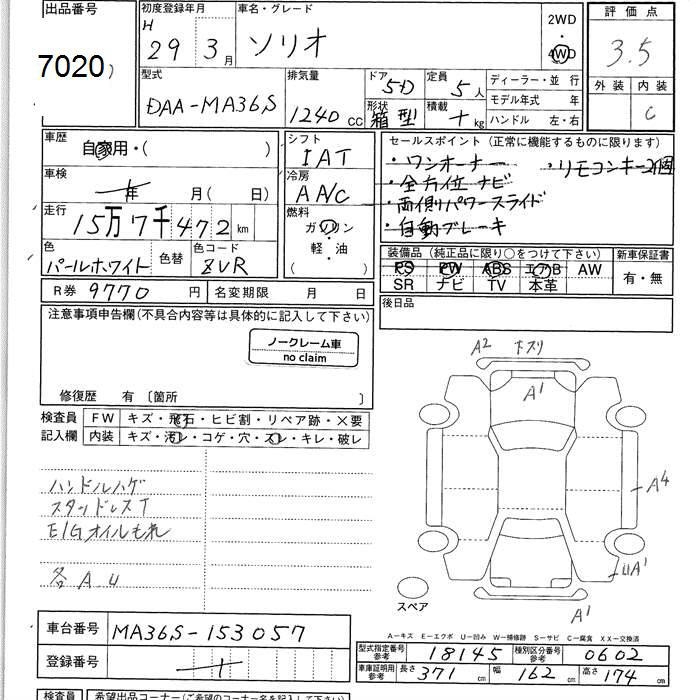 出品番号
7020)
初度登録年月
H
29 3月
車名・グレード
ソリオ
2WD
・
4WD
評価点
3.5
外装 内装
C
型式
DAA-MA36S
排気量
1240cc
ドア 5D
形状 箱型
定員 5人
積載 kg
ディーラー・並行
モデル年式 年
ハンドル 左・右
車歴
自家用・( )
車検
年 月( 日)
走行
15万7千472km
色
パールホワイト
色替
色コード
ZVR
シフト
IAT
冷房
AAC
燃料
ガソリン
軽・油
( )
セールスポイント(正常に機能するものに限ります)
・ワンオーナー ・リモコンキー2個
・全方位ナビ
・両側パワースライド
・自動ブレーキ
装備品(純正品に限り○をつけて下さい)
PS PW ABS エアB AW
SR ナビ TV 本革
新車保証書
有・無
R券 9770円
名変期限 月 日
後日品
注意事項申告欄(不具合内容等は具体的に記入して下さい)
ノークレーム車
no claim
修復歴 有〔箇所 〕
検査員
記入欄
FW キズ・飛石・ヒビ割・リペア跡・×要
内装 キズ・汚レ・コゲ・穴・スレ・キレ・破レ
ハンドルハゲ
スタッドレスT
E/Gオイルもれ
各A.U
A2
A1
A4
UA1
A1
スペア
A-キズ E-エクボ U-凹み W-補修跡 S-サビ C-腐食 XX-交換済
車台番号 MA36S-153057
登録番号
型式指定番号
参考
18145
種別区分番号
参考
0602
車庫証明用
参考
長さ 371cm 幅 162cm 高さ 174cm
検査員 希望出品コーナー(ご希望のコーナー名を記入して下さい)